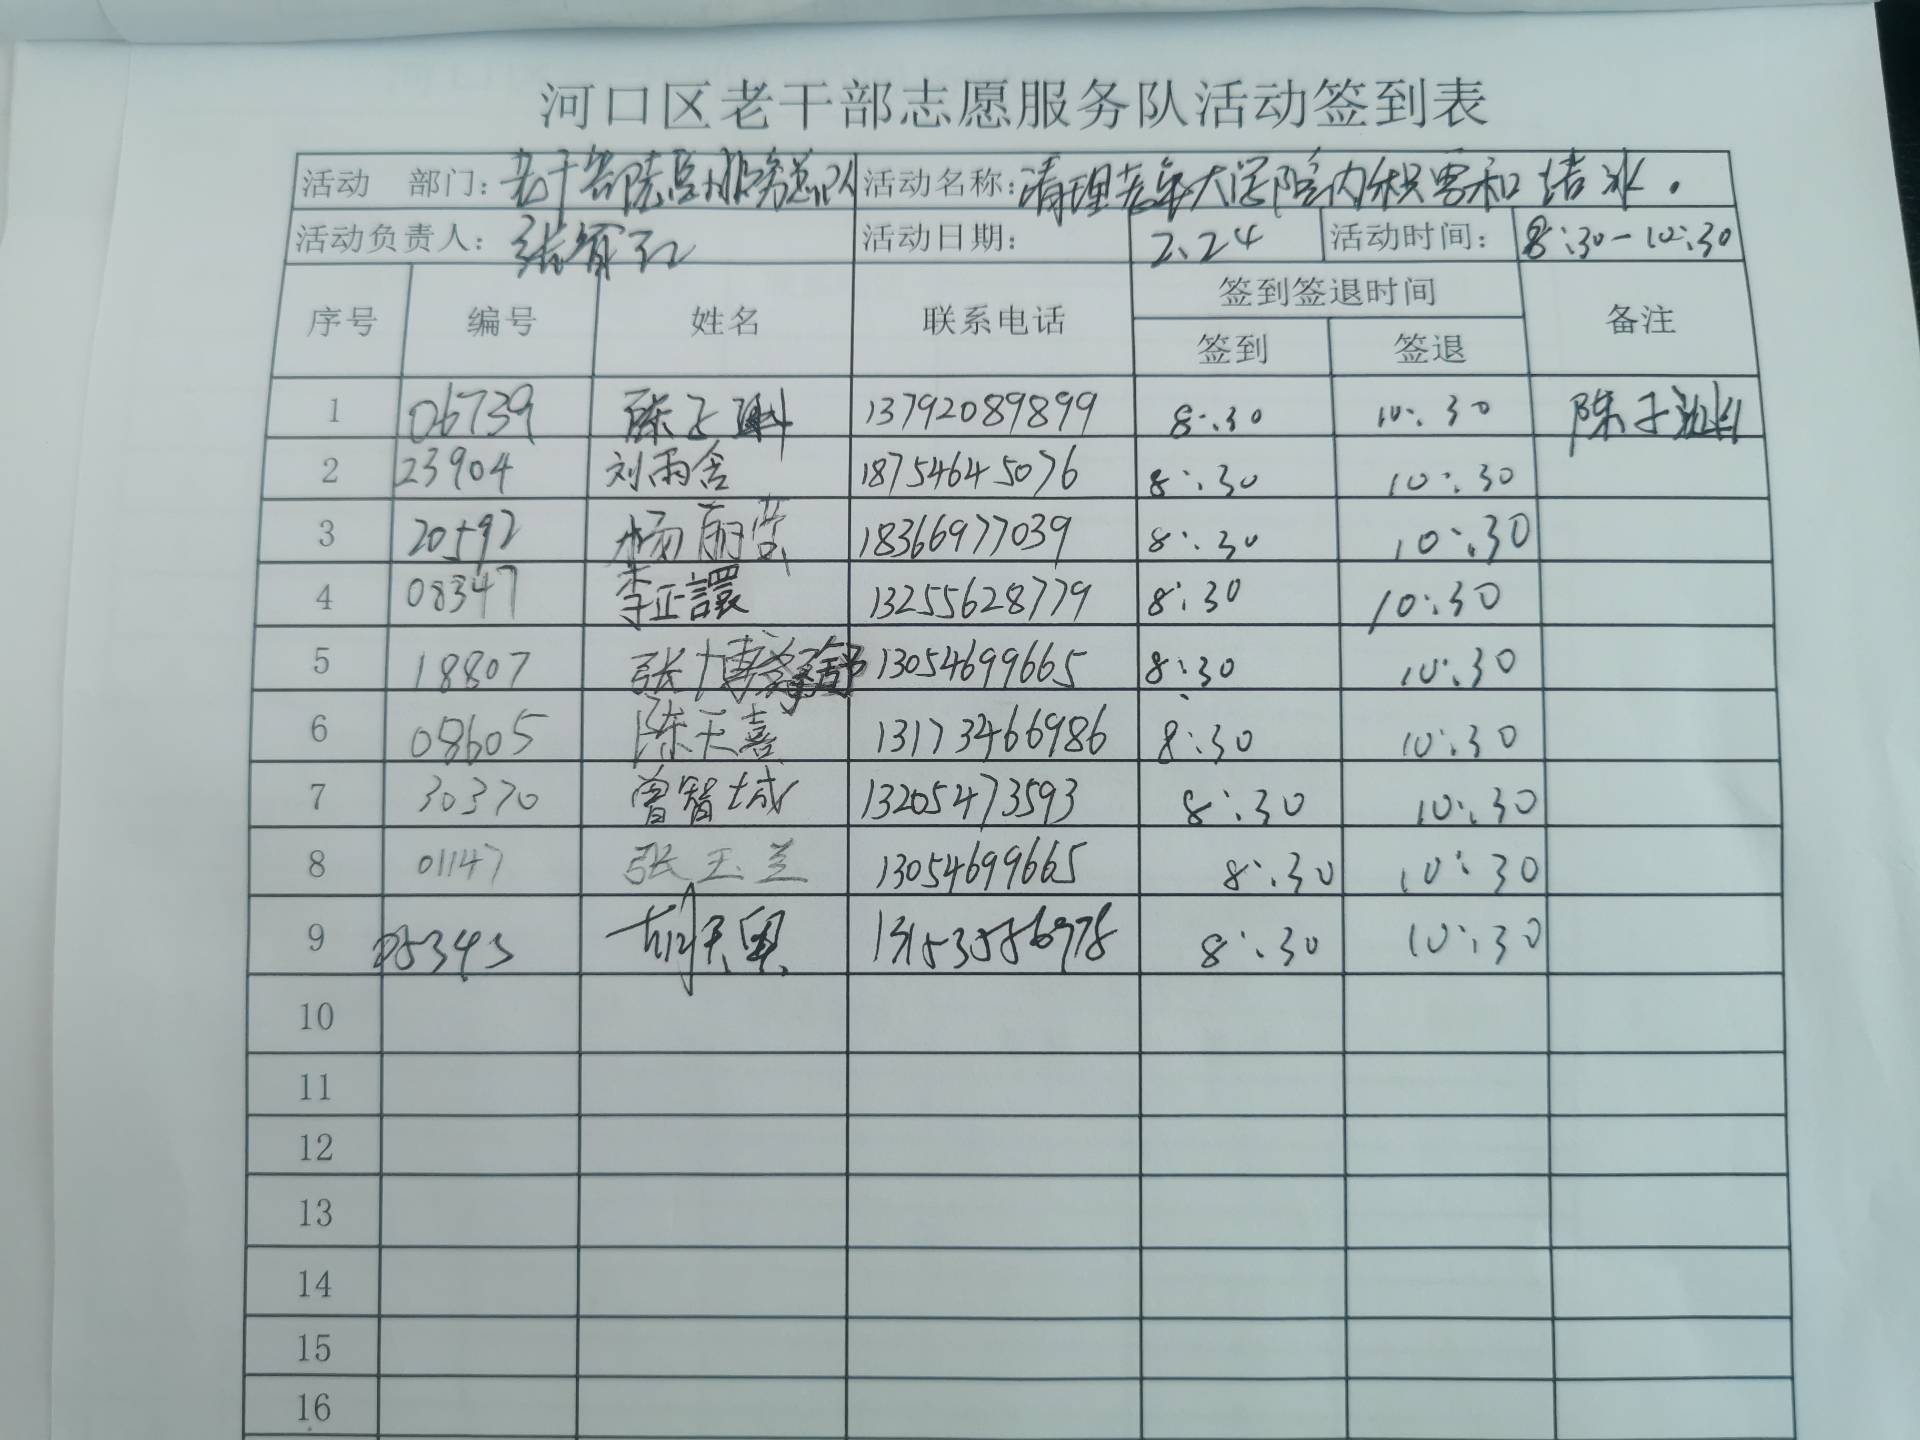 河口区老干部志愿服务队活动签到表
活动 部门： 活动名称：清理老年大学院内积雪和结冰.
活动负责人： 活动日期： 2.24 活动时间： 8:30-10:30
序号 编号 姓名 联系电话 签到签退时间 备注
签到 签退
1 06739 陈子 13792089899 8:30 10:30 陈子
2 23904 刘雨含 18754645076 8:30 10:30
3 20592 杨丽 18366977039 8:30 10:30
4 08347 李正譞 13255628779 8:30 10:30
5 18807 张博 13054699665 8:30 10:30
6 08605 陈天喜 13173466986 8:30 10:30
7 30370 曾智城 13205473593 8:30 10:30
8 01147 张玉兰 13054699665 8:30 10:30
9 胡天 8:30 10:30
10
11
12
13
14
15
16